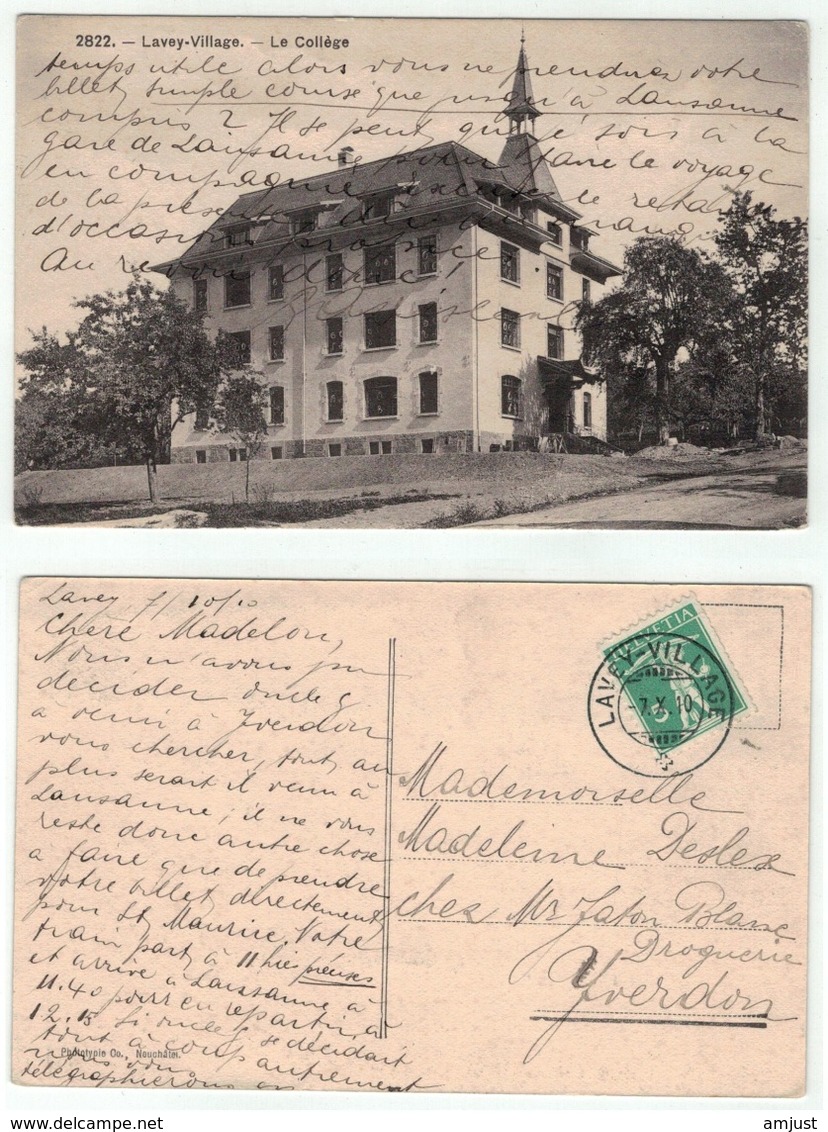 2822. — Lavey-Village. — Le Collège
temps utile alors vous ne prendrez votre
billet simple course que jusqu'à Lausanne
compris ? Il se peut que je sois à la
gare de Lausanne pour faire le voyage
en compagnie excusez le retard
de la présente
d'occasions
Au revoir donc !
Lavey 7/10/10
Chère Madelon,
Nous n'avons pu
décider oncle G
à venir à Yverdon
vous chercher, tout au
plus serait il venu à
Lausanne ; il ne vous
reste donc autre chose
à faire que de prendre
votre billet directement
pour St Maurice. Votre
train part à 11 h précises
et arrive à Lausanne à
11.40 pour en repartir à
12.15 Si oncle G se décidait
tout à coup autrement
nous vous
télégraphierons en
Phototypie Co., Neuchâtel.
HELVETIA
5
LAVEY-VILLAGE
7.X.10
Mademoiselle
Madeleine Deslex
chez Mr Jaton Blanc
Droguerie
Yverdon
delcampe.net
amjust